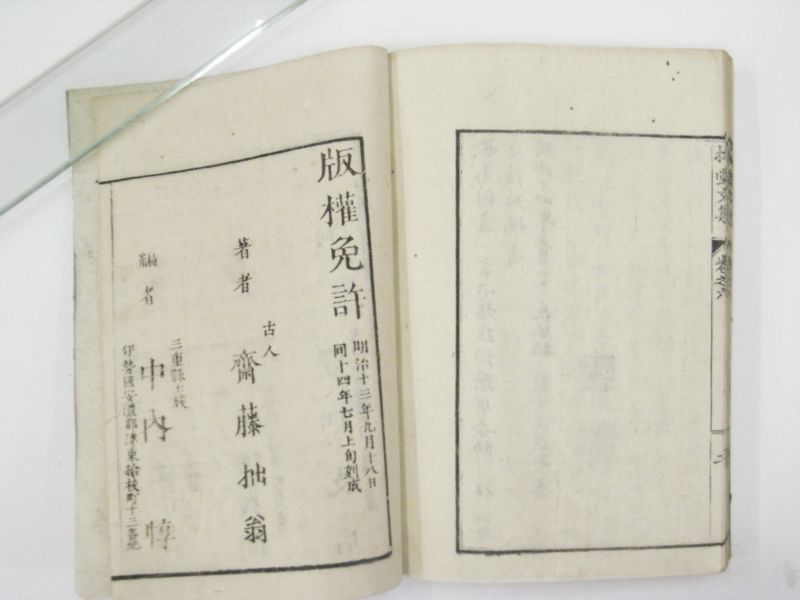 拙堂文集
卷之六
版權免許
明治十三年九月十八日
同十四年七月上旬刻成
著者
古人
齋藤拙翁
編者
三重縣士族
中內惇
伊勢國安濃郡津東拾枝町十三番地